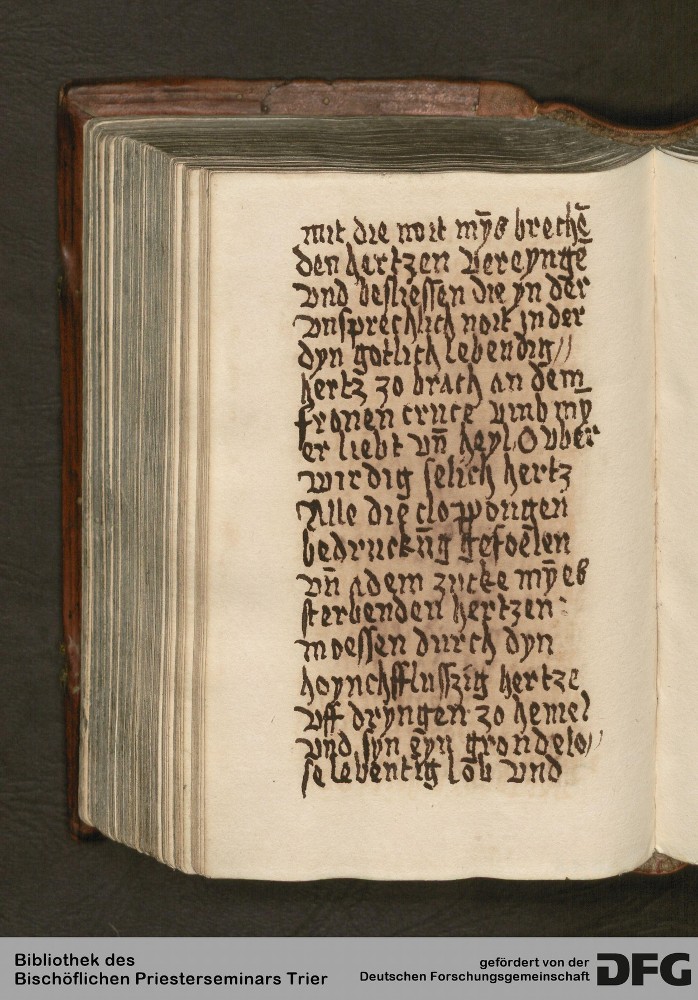 mit die noit mȳs brechē
den hertzen vereyngē
vnd besliessen die yn der
vnsprechlich noit jn der
dyn gotlich lebendig//
hertz zo brach an dem
fronen cruce vmb mȳ
er liebt vn̄ heyl O vber
wirdig selich hertz
Alle die cloppongen
bedruckn̄g gefoelen
vn̄ adem zucke mȳes
sterbenden hertzen :
moessen durch dyn
hoynchfflusszig hertze
vff dryngen zo hemel
vnd syn eyn grondelo//
se leventig lōb vnd
Bibliothek des
Bischöflichen Priesterseminars Trier
gefördert von der
Deutschen Forschungsgemeinschaft
DFG